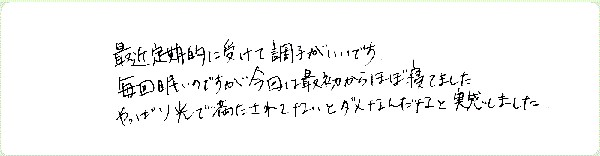 最近定期的に受けて調子がいいです
毎回眠いのですが今回は最初からほぼ寝てました
やっぱり光で満たされてないとダメなんだなと実感しました